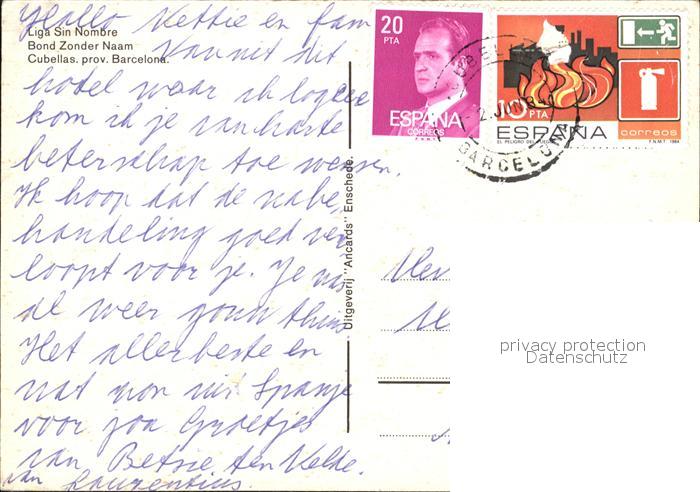 Hallo Nettie en fam
Liga Sin Nombre
Bond Zonder Naam
Cubellas. prov. Barcelona.
Vannuit dit
hotel waar ik logeer
kom ik je van harte
beterschap toe wensen.
Ik hoop dat de nabe,
handeling goed ver
loopt voor je. Je
weer gauw thuis
Het allerbeste en
wat van uit Spanje
voor jou Groetjes
van Betsie ten Velde.
van Laurentius.
Uitgeverij "Ancards" Enschede.
20
PTA
ESPAÑA
CORREOS
F.N.M.T.
10 PTA
ESPAÑA
correos
EL PELIGRO DEL FUEGO
F.N.M.T. 1984
BARCELONA
privacy protection
Datenschutz